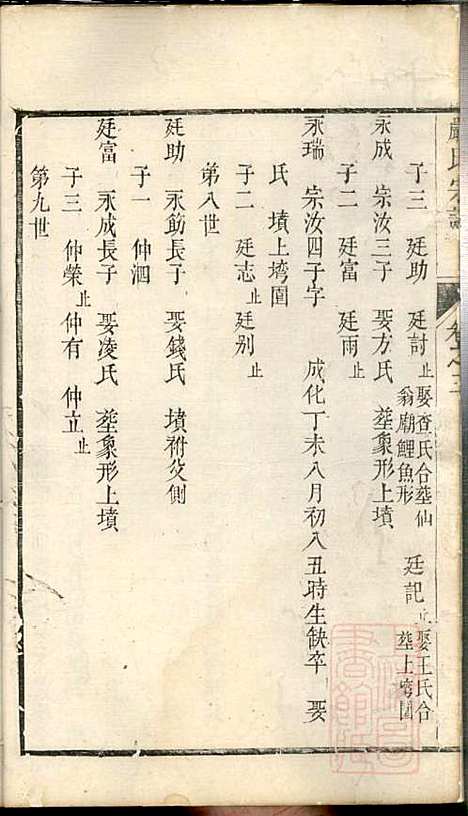 嚴氏宗譜
卷之三
子三　廷助　廷討止娶查氏合塟仙翁廟鯉魚形　廷記止娶王氏合塟上塆園
永成　宗汝三子　娶方氏　塟象形上墳
子二　廷富　廷雨止
永瑞　宗汝四子字　成化丁未八月初八丑時生缺卒　娶
氏　墳上塆園
子二　廷志止廷别止
第八世
廷助　永飭長子　娶錢氏　墳祔父側
子一　仲泗
廷富　永成長子　娶凌氏　塟象形上墳
子三　仲榮止仲有　仲立止
第九世